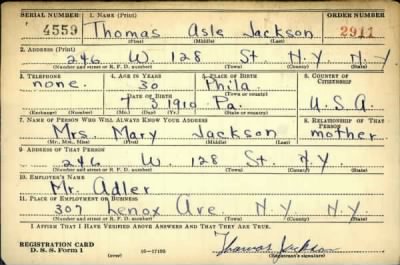 SERIAL NUMBER 1. NAME (Print) ORDER NUMBER
4559 Thomas Asle Jackson 2911
(First) (Middle) (Last)
2. ADDRESS (Print)
246 W. 128 St. N.Y. N.Y
(Number and street or R. F. D. number) (Town) (County) (State)
3. TELEPHONE 4. AGE IN YEARS 5. PLACE OF BIRTH 6. COUNTRY OF CITIZENSHIP
none. 30 Phila.
DATE OF BIRTH (Town or county)
7 3 1910 Pa. U.S.A.
(Exchange) (Number) (Mo.) (Day) (Yr.) (State or country)
7. NAME OF PERSON WHO WILL ALWAYS KNOW YOUR ADDRESS 8. RELATIONSHIP OF THAT PERSON
Mrs. Mary Jackson mother
(Mr., Mrs., Miss) (First) (Middle) (Last)
9. ADDRESS OF THAT PERSON
246 W. 128 St. N.Y.
(Number and street or R. F. D. number) (Town) (County) (State)
10. EMPLOYER'S NAME
Mr. Adler
11. PLACE OF EMPLOYMENT OR BUSINESS
307 Lenox Ave. N.Y. N.Y.
(Number and street or R. F. D. number) (Town) (County) (State)
I AFFIRM THAT I HAVE VERIFIED ABOVE ANSWERS AND THAT THEY ARE TRUE.
REGISTRATION CARD
D. S. S. Form 1 (over) Thomas Jackson
(Registrant's signature)